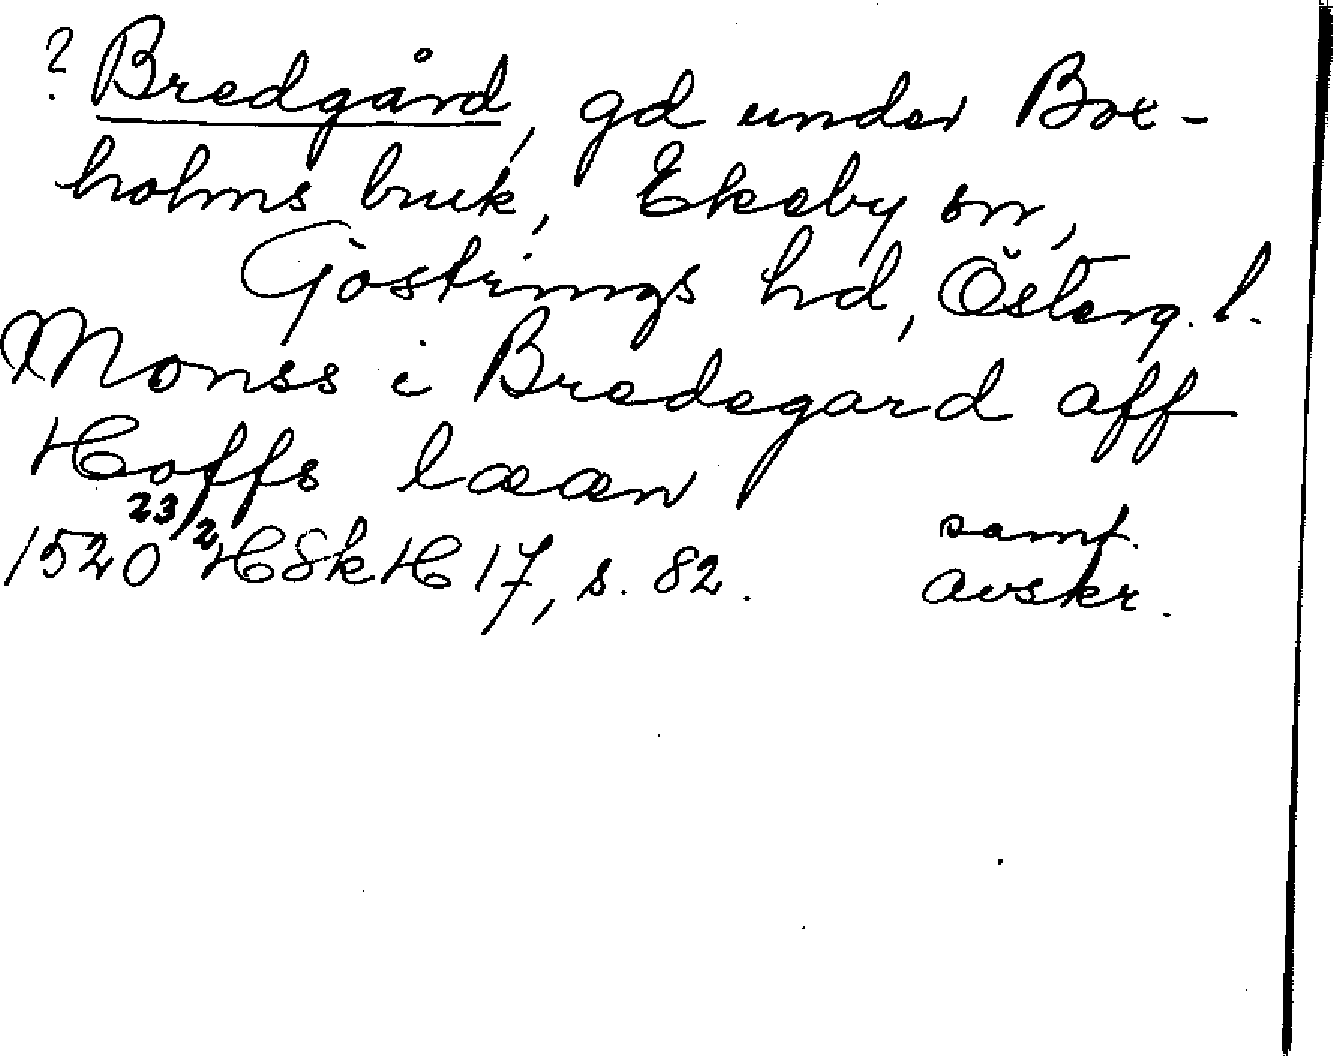 ? Bredgård, gd under Box-
holms bruk, Ekeby sn,
Göstrings hd, Österg. l.
Monss i Bredegard aff
Hoffs lææn
1520 23/2 HSkH 17, s. 82. samt.
avskr.